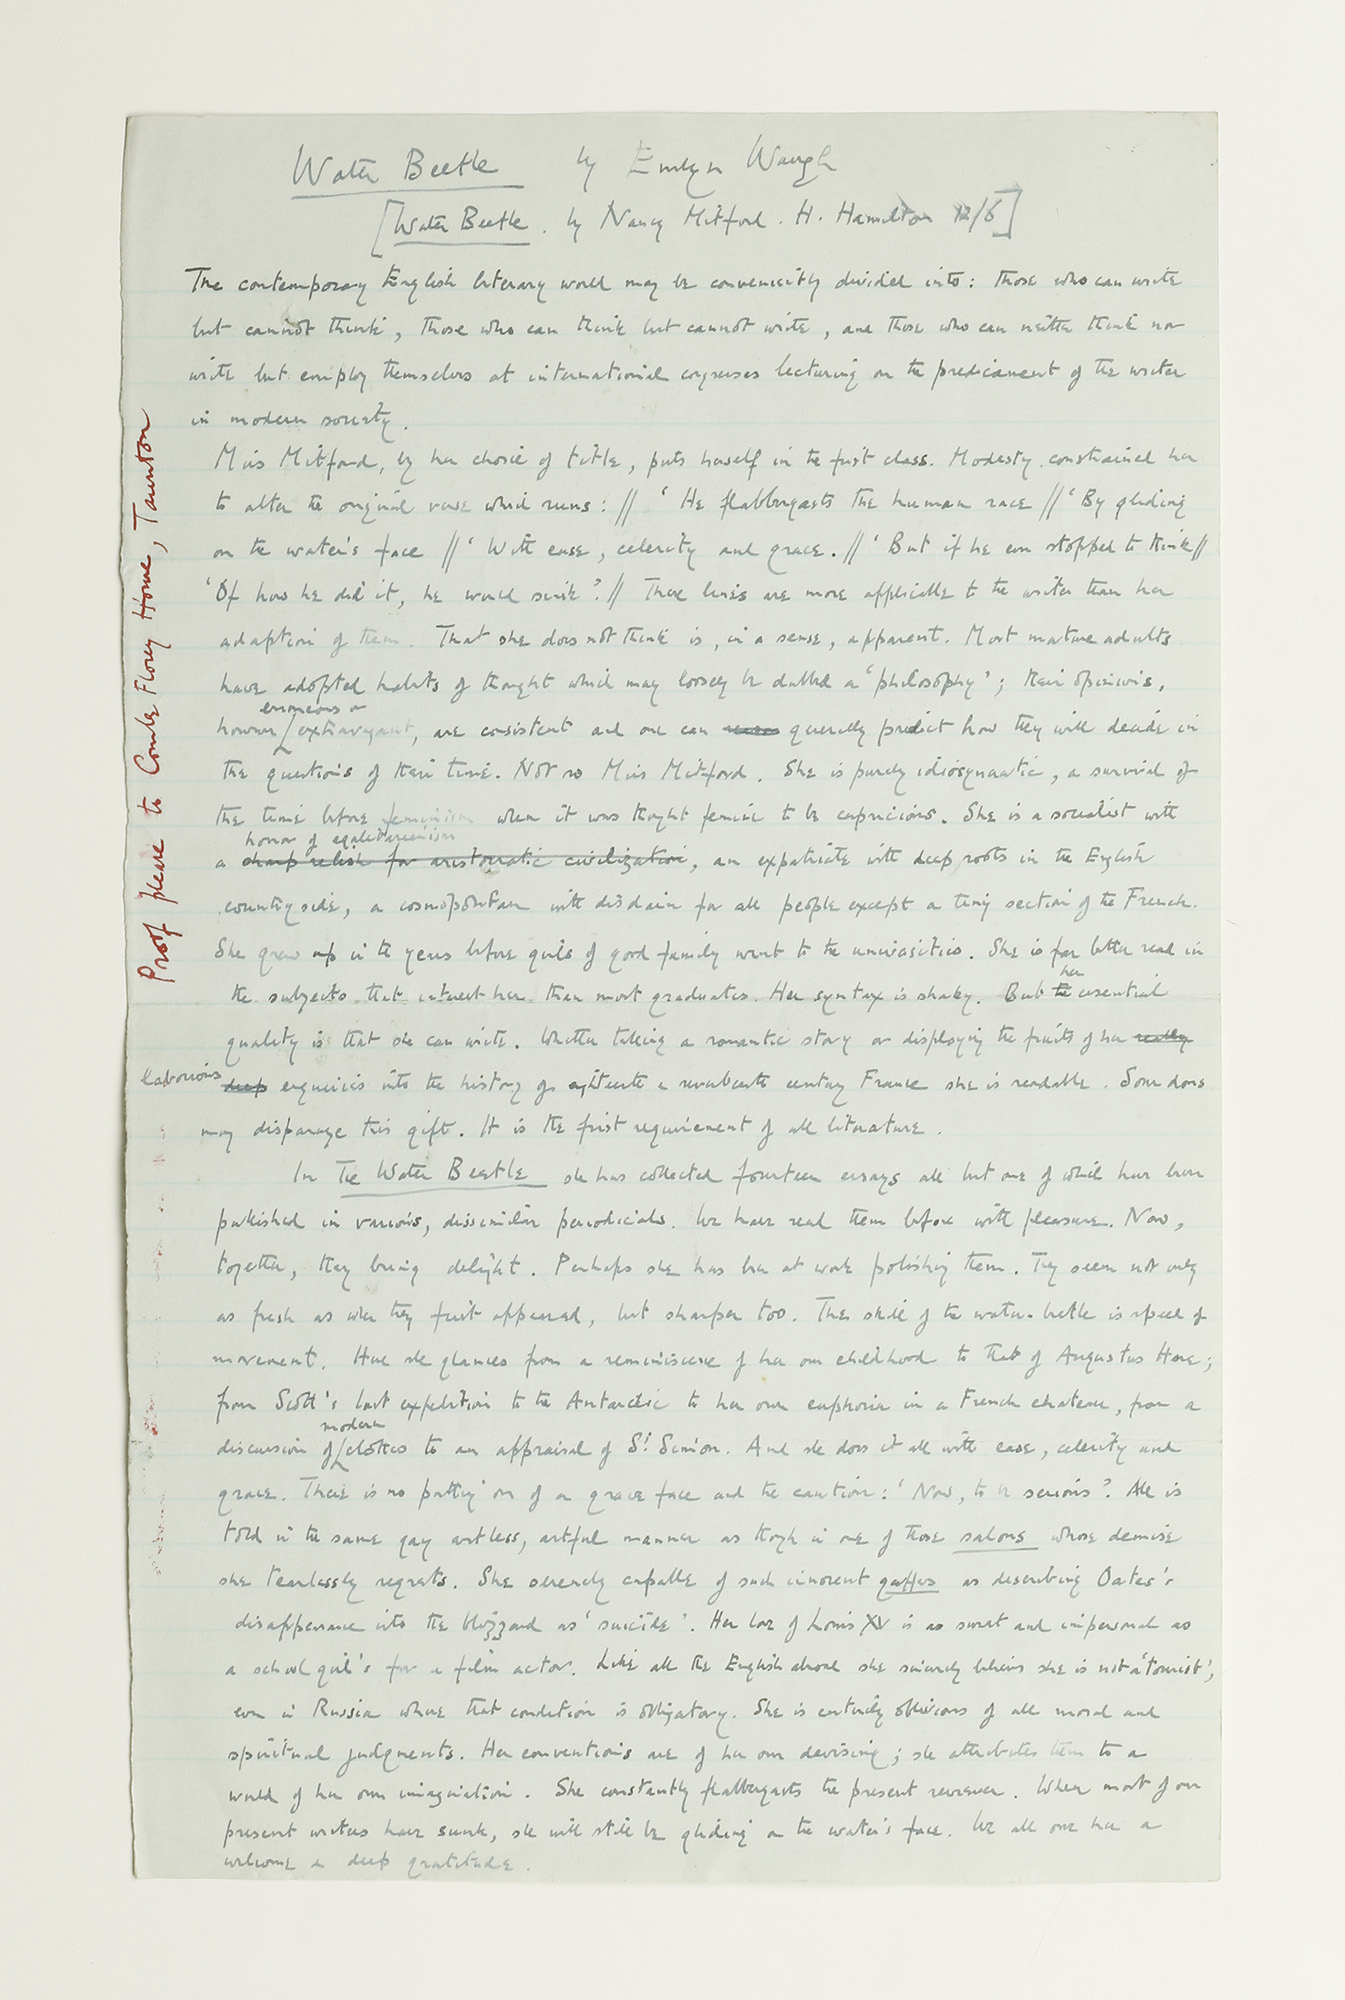 Water Beetle by Evelyn Waugh
[Water Beetle. by Nancy Mitford. H. Hamilton 12/6]
The contemporary English literary world may be conveniently divided into: those who can write
but cannot think, those who can think but cannot write, and those who can neither think nor
write but employ themselves at international congresses lecturing on the predicament of the writer
in modern society.
Miss Mitford, by her choice of title, puts herself in the first class. Modesty constrained her
to alter the original verse which runs: // 'He flabbergasts the human race // 'By gliding
on the water's face // 'With ease, celerity and grace. // 'But if he ever stopped to think //
'Of how he did it, he would sink'. // These lines are more applicable to the writer than her
adaption of them. That she does not think is, in a sense, apparent. Most mature adults
have adopted habits of thought which may loosely be dubbed a 'philosophy'; their opinions,
erroneous or
however / extravagant, are consistent and one can generally predict how they will decide in
the questions of their time. Not so Miss Mitford. She is purely idiosyncratic, a survival of
the time before feminism when it was thought feminine to be capricious. She is a socialist with
horror of egalitarianism
a sharp relish for aristocratic civilization, an expatriate with deep roots in the English
countryside, a cosmopolitan with disdain for all people except a tiny section of the French.
She grew up in the years before girls of good family went to the universities. She is far better read in
her
the subjects that interest her than most graduates. Her syntax is shaky. But the essential
quality is that she can write. Whether telling a romantic story or displaying the fruits of her really
laborious deep enquiries into the history of eighteenth & seventeenth century France she is readable. Some dons
may disparage this gift. It is the first requirement of all literature.
In The Water Beetle she has collected fourteen essays all but one of which have been
published in various, dissimilar periodicals. We have read them before with pleasure. Now,
together, they bring delight. Perhaps she has been at work polishing them. They seem not only
as fresh as when they first appeared, but sharper too. The skill of the water-beetle is speed of
movement. Here she glances from a reminiscence of her own childhood to that of Augustus Hare;
from Scott's last expedition to the Antarctic to her own euphoria in a French chateau, from a
modern
discussion of / clothes to an appraisal of St Simon. And she does it all with ease, celerity and
grace. There is no putting on of a grave face and the caution: 'Now, to be serious'. All is
told in the same gay artless, artful manner as though in one of those salons whose demise
she tearlessly regrets. She serenely capable of such innocent gaffes as describing Oates's
disappearance into the blizzard as 'suicide'. Her love of Louis XV is as sweet and impersonal as
a school girl's for a film actor. Like all the English abroad she sincerely believes she is not a 'tourist',
even in Russia where that condition is obligatory. She is entirely oblivious of all moral and
spiritual judgments. Her conventions are of her own devising; she attributes them to a
world of her own imagination. She constantly flabbergasts the present reviewer. When most of our
present writers have sunk, she will still be gliding on the water's face. We all owe her a
welcome & deep gratitude.
Proof please to Combe Florey House, Taunton